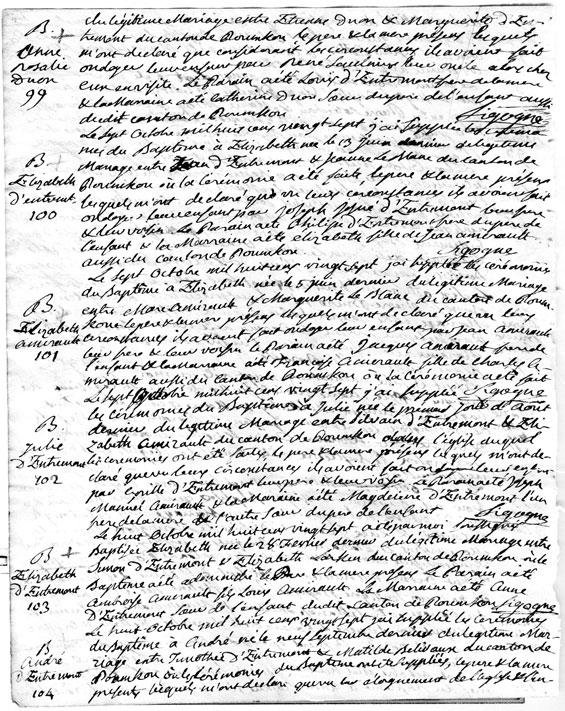 du légitime Mariage entre Etienne Duon & Marguerite d'En-
tremont du canton de Poumkou le pere & la mere présens lesquels
m'ont declaré que considerant les circonstances ils avoient fait
ondoyer leur enfant par René leur oncle alors chez
eux en visite. Le Parain a été Louis d'Entremont frere de la mere
& la Maraine a été Catherine Duon Sœur du pere de l'enfant aussi
dudit canton de Poumkou. Sigogne
B. +
Anne
rosalie
Duon
99
Le Sept Octobre mil huit cens vingt sept j'ai Suppléé les cérémo-
nies du Baptême à Elizabeth née le 13 Juin dernier du légitime
Mariage entre d'Entremont & Jeanne Le Blanc du canton de
Poumkou où la Cérémonie a été faite le pere & la mere présens
lesquels m'ont declaré que vu leurs circonstances ils avoient fait
ondoyer leur enfant par Joseph d'Entremont leur frere
& leur voisin. Le Parain a été Philippe d'Entremont frere du pere de
l'enfant & la Marraine a été Elizabeth fille de Jean Amirault
aussi du canton de Poumkou. Sigogne
B +
Elizabeth
d'entremt
100
Le Sept Octobre mil huit cens vingt sept j'ai Suppléé les cérémonies
du Baptême à Elizabeth née le 5 juin dernier du légitime Mariage
entre Marc Amirault & Marguerite Le Blanc du canton de Poum-
kou le pere & la mere présens lesquels m'ont declaré que vu leurs
circonstances ils avoient fait ondoyer leur enfant par Jean Amirault
leur pere & leur voisin le Parain a été Jacques Amirault frere de
l'enfant & la Maraine a été Françoise Amirault fille de Charles A-
mirault aussi du canton de Poumkou où la Cérémonie a été fait
Sigogne
B.
Elizabeth
Amirault
101
Le Sept Octobre mil huit cens vingt sept j'ai suppléé
les cérémonies du Baptême à Julie née le premier Jour d'Aout
dernier du légitime Mariage entre Silvain d'Entremont & Eli-
zabeth Amirault du canton de Poumkou dans l'église duquel
les cérémonies ont été faites, le pere & la mere présens lesquels m'ont dé-
claré que vu leurs circonstances ils avoient fait leur enfant
par Cyrille d'Entremont leur pere & leur voisin Le Parain a été Joseph
Manuel Amirault & la Maraine a été Magdeleine d'Entremont l'un
frere de la mere & l'autre Sœur du pere de l'enfant Sigogne
B.
Julie
D'Entremont
102
Le huit Octobre mil huit cens vingt sept a été par moi Soussigné
Baptisée Elizabeth née le 28 Fevrier dernier du légitime Mariage entre
Simon d'Entremont & Elizabeth Larkin du canton de Poumkou où le
Baptême a été administré le Pere & la mere présens Le Parain a été
Ambroise Amirault fils Louis Amirault. La Marraine a été Anne
D'Entremont Sœur de l'enfant dudit canton de Poumkou Sigogne
B +
Elizabeth
D'Entremont
103
Le huit Octobre mil huit cens vingt sept j'ai suppléé les cérémonies
du Baptême à André né le neuf Septembre dernier du légitime Mar-
riage entre Timothée d'Entremont & Matilde Beliveau du canton de
Poumkou où les Cérémonies du Baptême ont été Suppléées, le pere & la mere
présents lesquels m'ont déclaré que vu leur éloignement de l'église & l'in-
B
André
D'Entremont
104